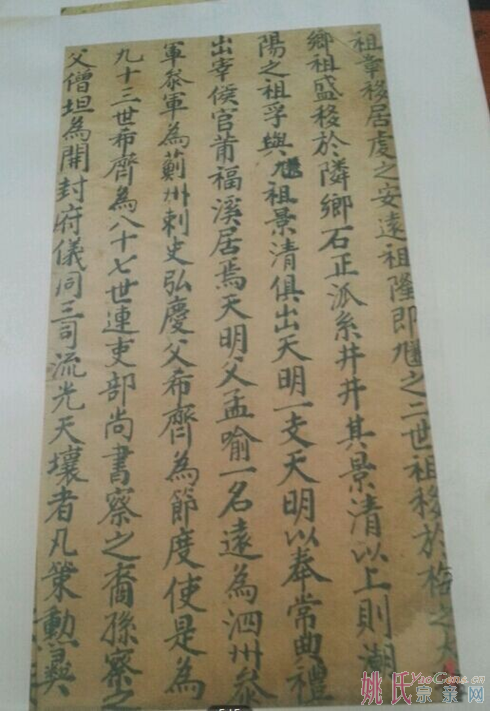 祖章移居虔之安遠祖隆即𠒋之二世祖移於
鄉祖盛移於隣鄉石正派系井井其景清以上則潮
陽之祖孚與祖景清俱出天明一支天明以奉常典禮
出宰侯官莆福溪居焉天明父孟喻一名遠為泗州叅
軍叅軍為薊州刺史弘慶父希齊為節度使是為
九十三世希齊為八十七世連吏部尚書察之裔孫察之
父僧坦為開封府儀同三司流光天壤者凡策勳彛
姚氏宗菜网
YaoGens.cn